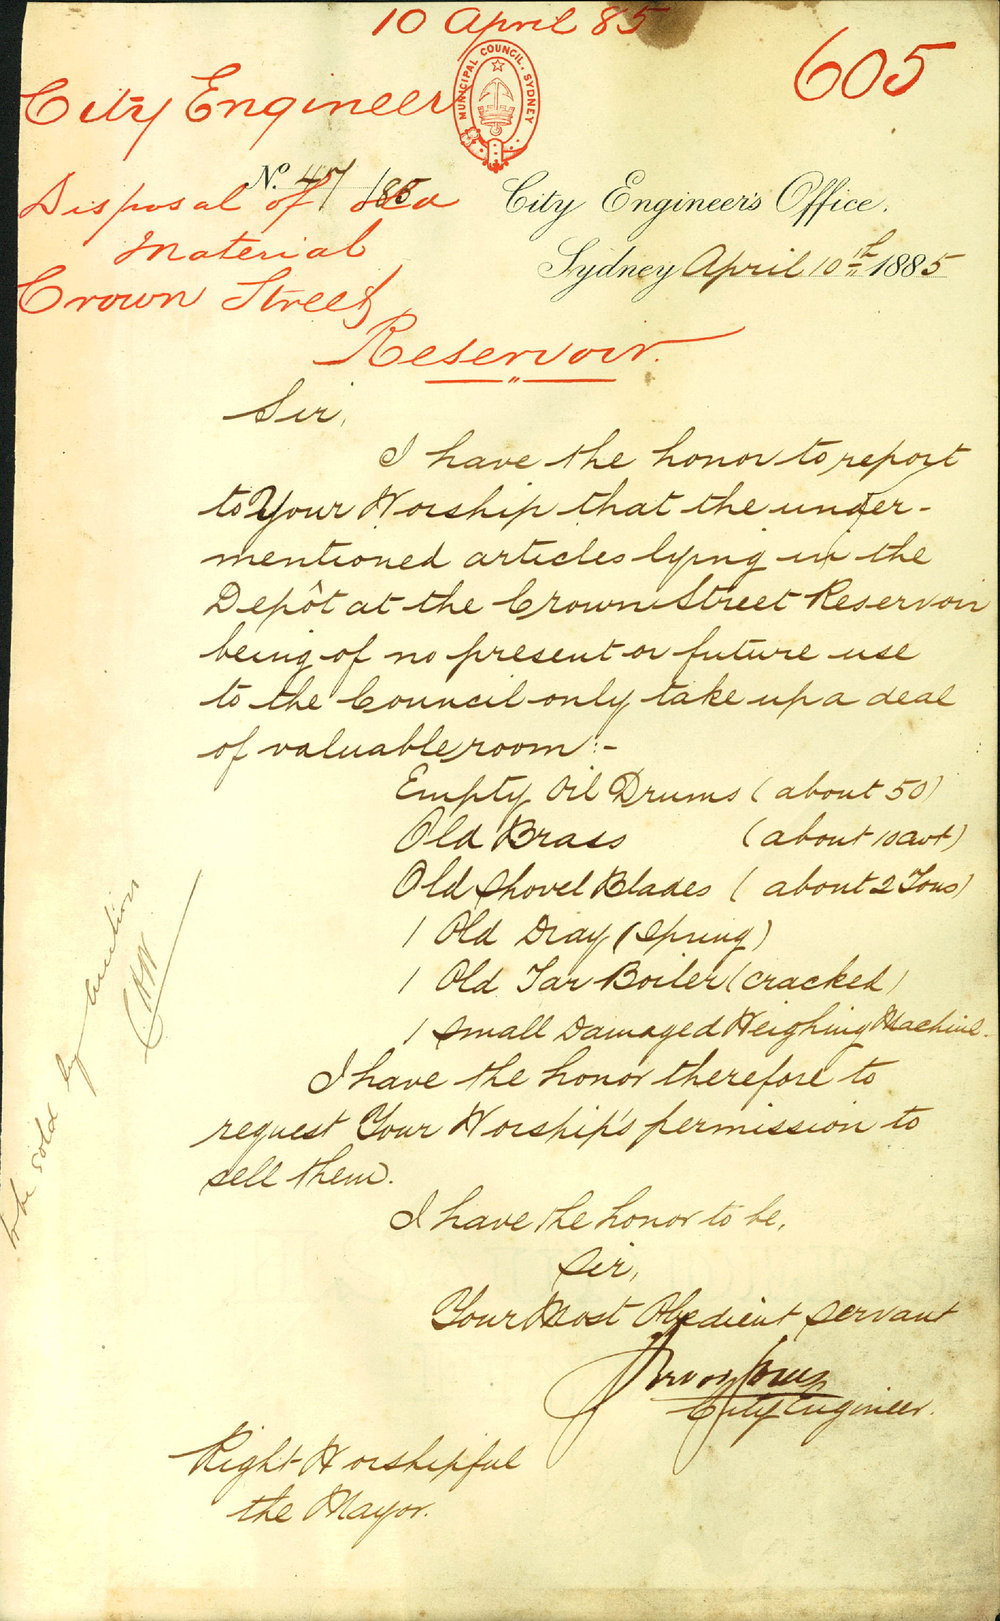 10 April 85
605
City Engineer
MUNICIPAL COUNCIL, SYDNEY
No. 47 /1885
Disposal of Old
Material
Crown Street
Reservoir.
City Engineer's Office.
Sydney April 10th 1885
Sir,
I have the honor to report
to Your Worship that the under-
mentioned articles lying in the
Depôt at the Crown Street Reservoir
being of no present or future use
to the Council only take up a deal
of valuable room:-
Empty Oil Drums (about 50)
Old Brass (about 10 cwt)
Old Shovel Blades (about 2 Tons)
1 Old Dray (Spring)
1 Old Tar Boiler (cracked)
1 Small Damaged Weighing Machine.
I have the honor therefore to
request Your Worship's permission to
sell them.
I have the honor to be,
Sir,
Your Most Obedient Servant
City Engineer.
Right Worshipful
the Mayor.
to be sold by auction